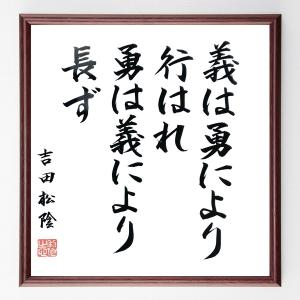 義は勇により
行はれ
勇は義により
長ず
吉田松陰